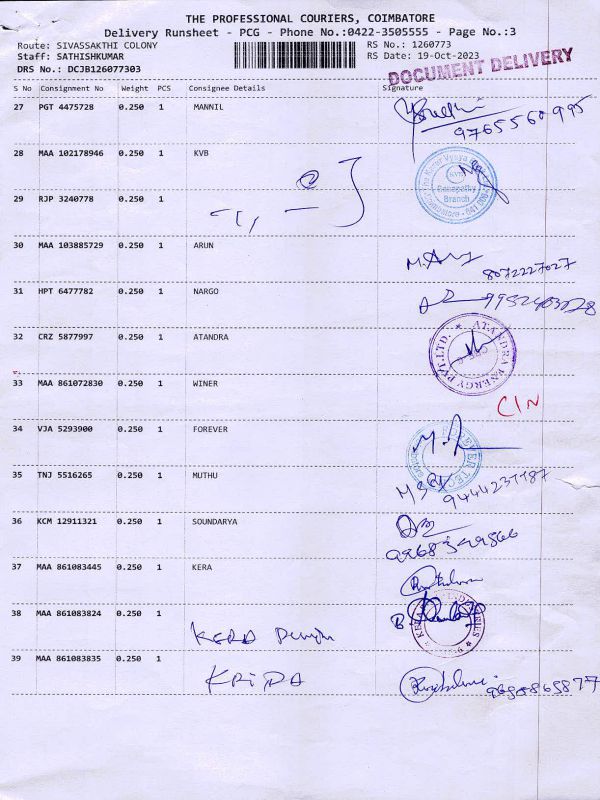 THE PROFESSIONAL COURIERS, COIMBATORE
Delivery Runsheet - PCG - Phone No.:0422-3505555 - Page No.:3
Route: SIVASSAKTHI COLONY RS No.: 1260773
Staff: SATHISHKUMAR RS Date: 19-Oct-2023
DRS No.: DCJB126077303
DOCUMENT DELIVERY
S No Consignment No Weight PCS Consignee Details Signature
27 PGT 4475728 0.250 1 MANNIL
9765560995
28 MAA 102178946 0.250 1 KVB
Ganapathy
Branch
29 RJP 3240778 0.250 1
30 MAA 103885729 0.250 1 ARUN
8072227027
31 HPT 6477782 0.250 1 NARGO
32 CRZ 5877997 0.250 1 ATANDRA
ATANDRA ENERGY PVT.LTD.
33 MAA 861072830 0.250 1 WINER
CIN
34 VJA 5293900 0.250 1 FOREVER
35 TNJ 5516265 0.250 1 MUTHU
36 KCM 12911321 0.250 1 SOUNDARYA
37 MAA 861083445 0.250 1 KERA
38 MAA 861083824 0.250 1
KERA
39 MAA 861083835 0.250 1
KRIPA